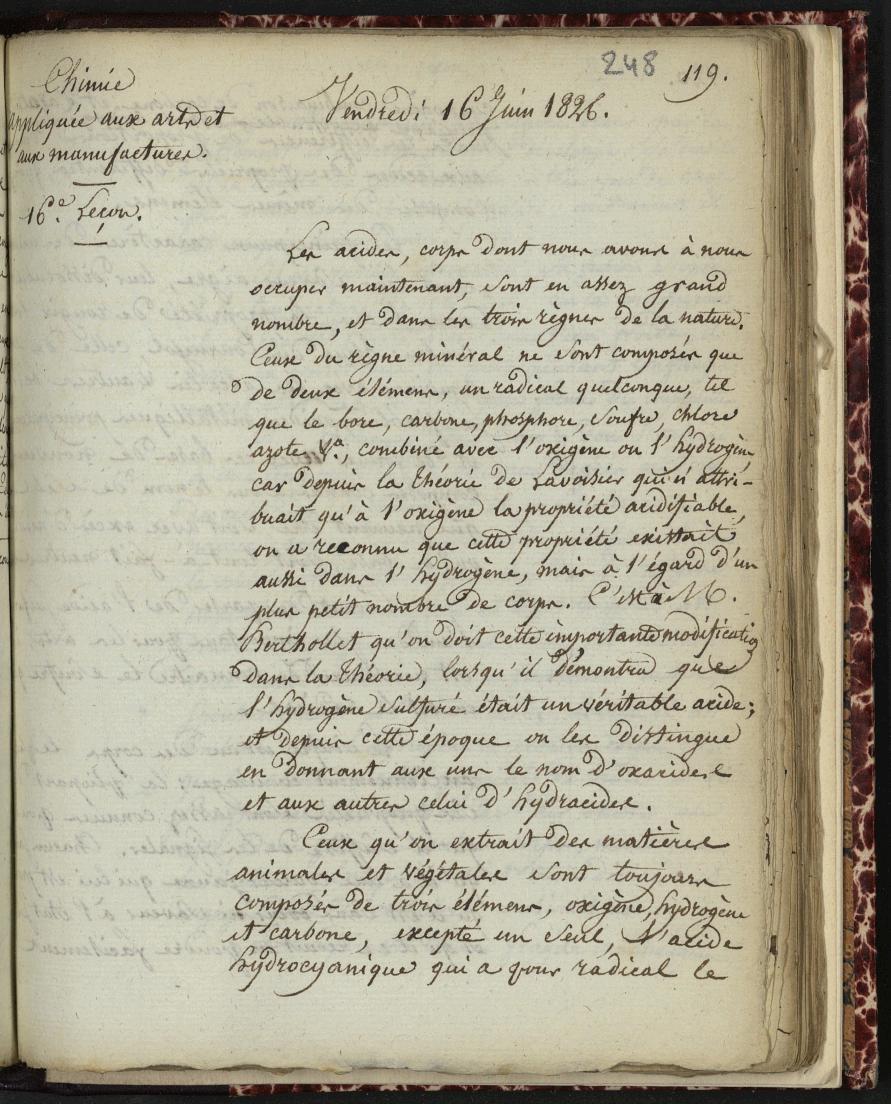 248
119.
Chimie
appliquée aux arts et
aux manufactures.
16e. Leçon.
Vendredi 16 Juin 1826.
Les acides, corps dont nous avons à nous
occuper maintenant, sont en assez grand
nombre, et dans les trois règnes de la nature.
Ceux du règne minéral ne sont composés que
de deux élémens, un radical quelconque, tel
que le bore, carbone, phosphore, soufre, chlore
azote &a., combiné avec l'oxigène ou l'hydrogène
car depuis la théorie de Lavoisier qui n'attri-
buait qu'à l'oxigène la propriété acidifiable,
on a reconnu que cette propriété existait
aussi dans l'hydrogène, mais à l'égard d'un
plus petit nombre de corps. C'est à M.
Berthollet qu'on doit cette importante modification
dans la théorie, lorsqu'il démontra que
l'hydrogène sulfuré était un véritable acide;
et depuis cette époque on les distingue
en donnant aux uns le nom d'oxacides
et aux autres celui d'hydracides.
Ceux qu'on extrait des matières
animales et végétales sont toujours
composés de trois élémens, oxigène, hydrogène
et carbone, excepté un seul, l'acide
hydrocyanique qui a pour radical le